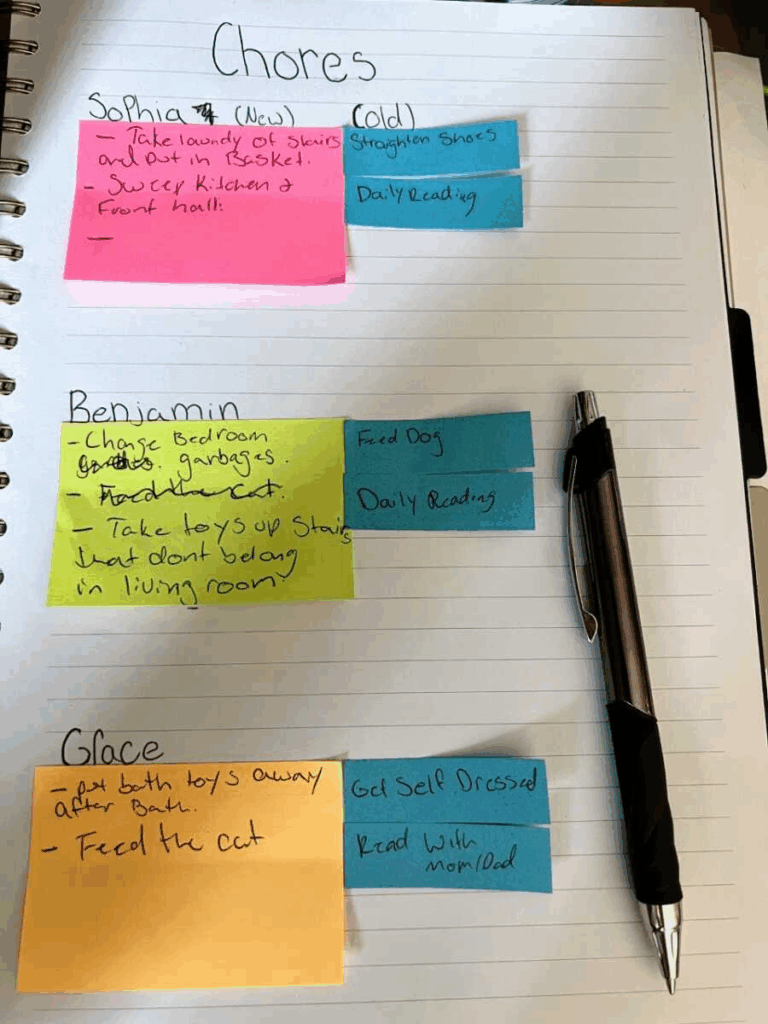 Chores
Sophia (New) (old)
- Take laundy of stairs
and put in Basket.
- Sweep Kitchen &
Front hall.
-
Straighten Shoes
Daily Reading
Benjamin
- Change Bedroom
garbages.
- Feed the cat.
- Take toys up Stairs
that dont belong
in living room.
Feed Dog
Daily Reading
Grace
- put bath toys away
after Bath.
- Feed the cat
Get Self Dressed
Read With
Mom/Dad